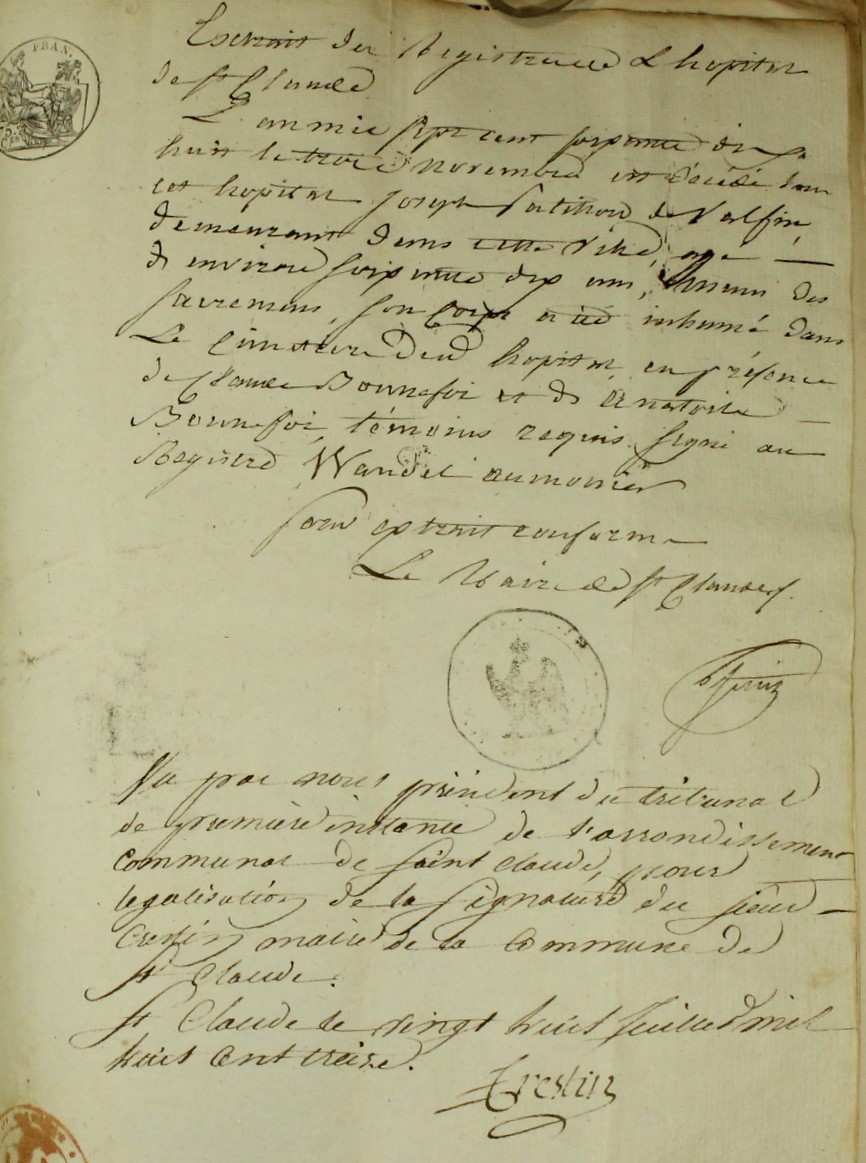 FRAN.
Extrait du Registre de L hopital
de St Claude
L an mil sept cent soixante dix
huit le treize Novembre est décédé dans
cet hopital joseph de Valfin
demeurant dans cette Ville, agé
de environ soixante dix ans, muni des
sacremens, son Corps a été inhumé dans
Le Cimetiere dud hopital en présence
de Claude Bonnefoi et de Anatoile
Bonnefoi témoins requis signé au
Registre Wandel aumonier
pour extrait conforme
Le Maire de St Claude
Vu par nous président du tribunal
de première instance de l'arrondissement
communal de Saint Claude, pour
legalisation de la signature du sieur
maire de la Commune de
St Claude.
St Claude le vingt huit juillet mil
huit cent treize.
Crestin